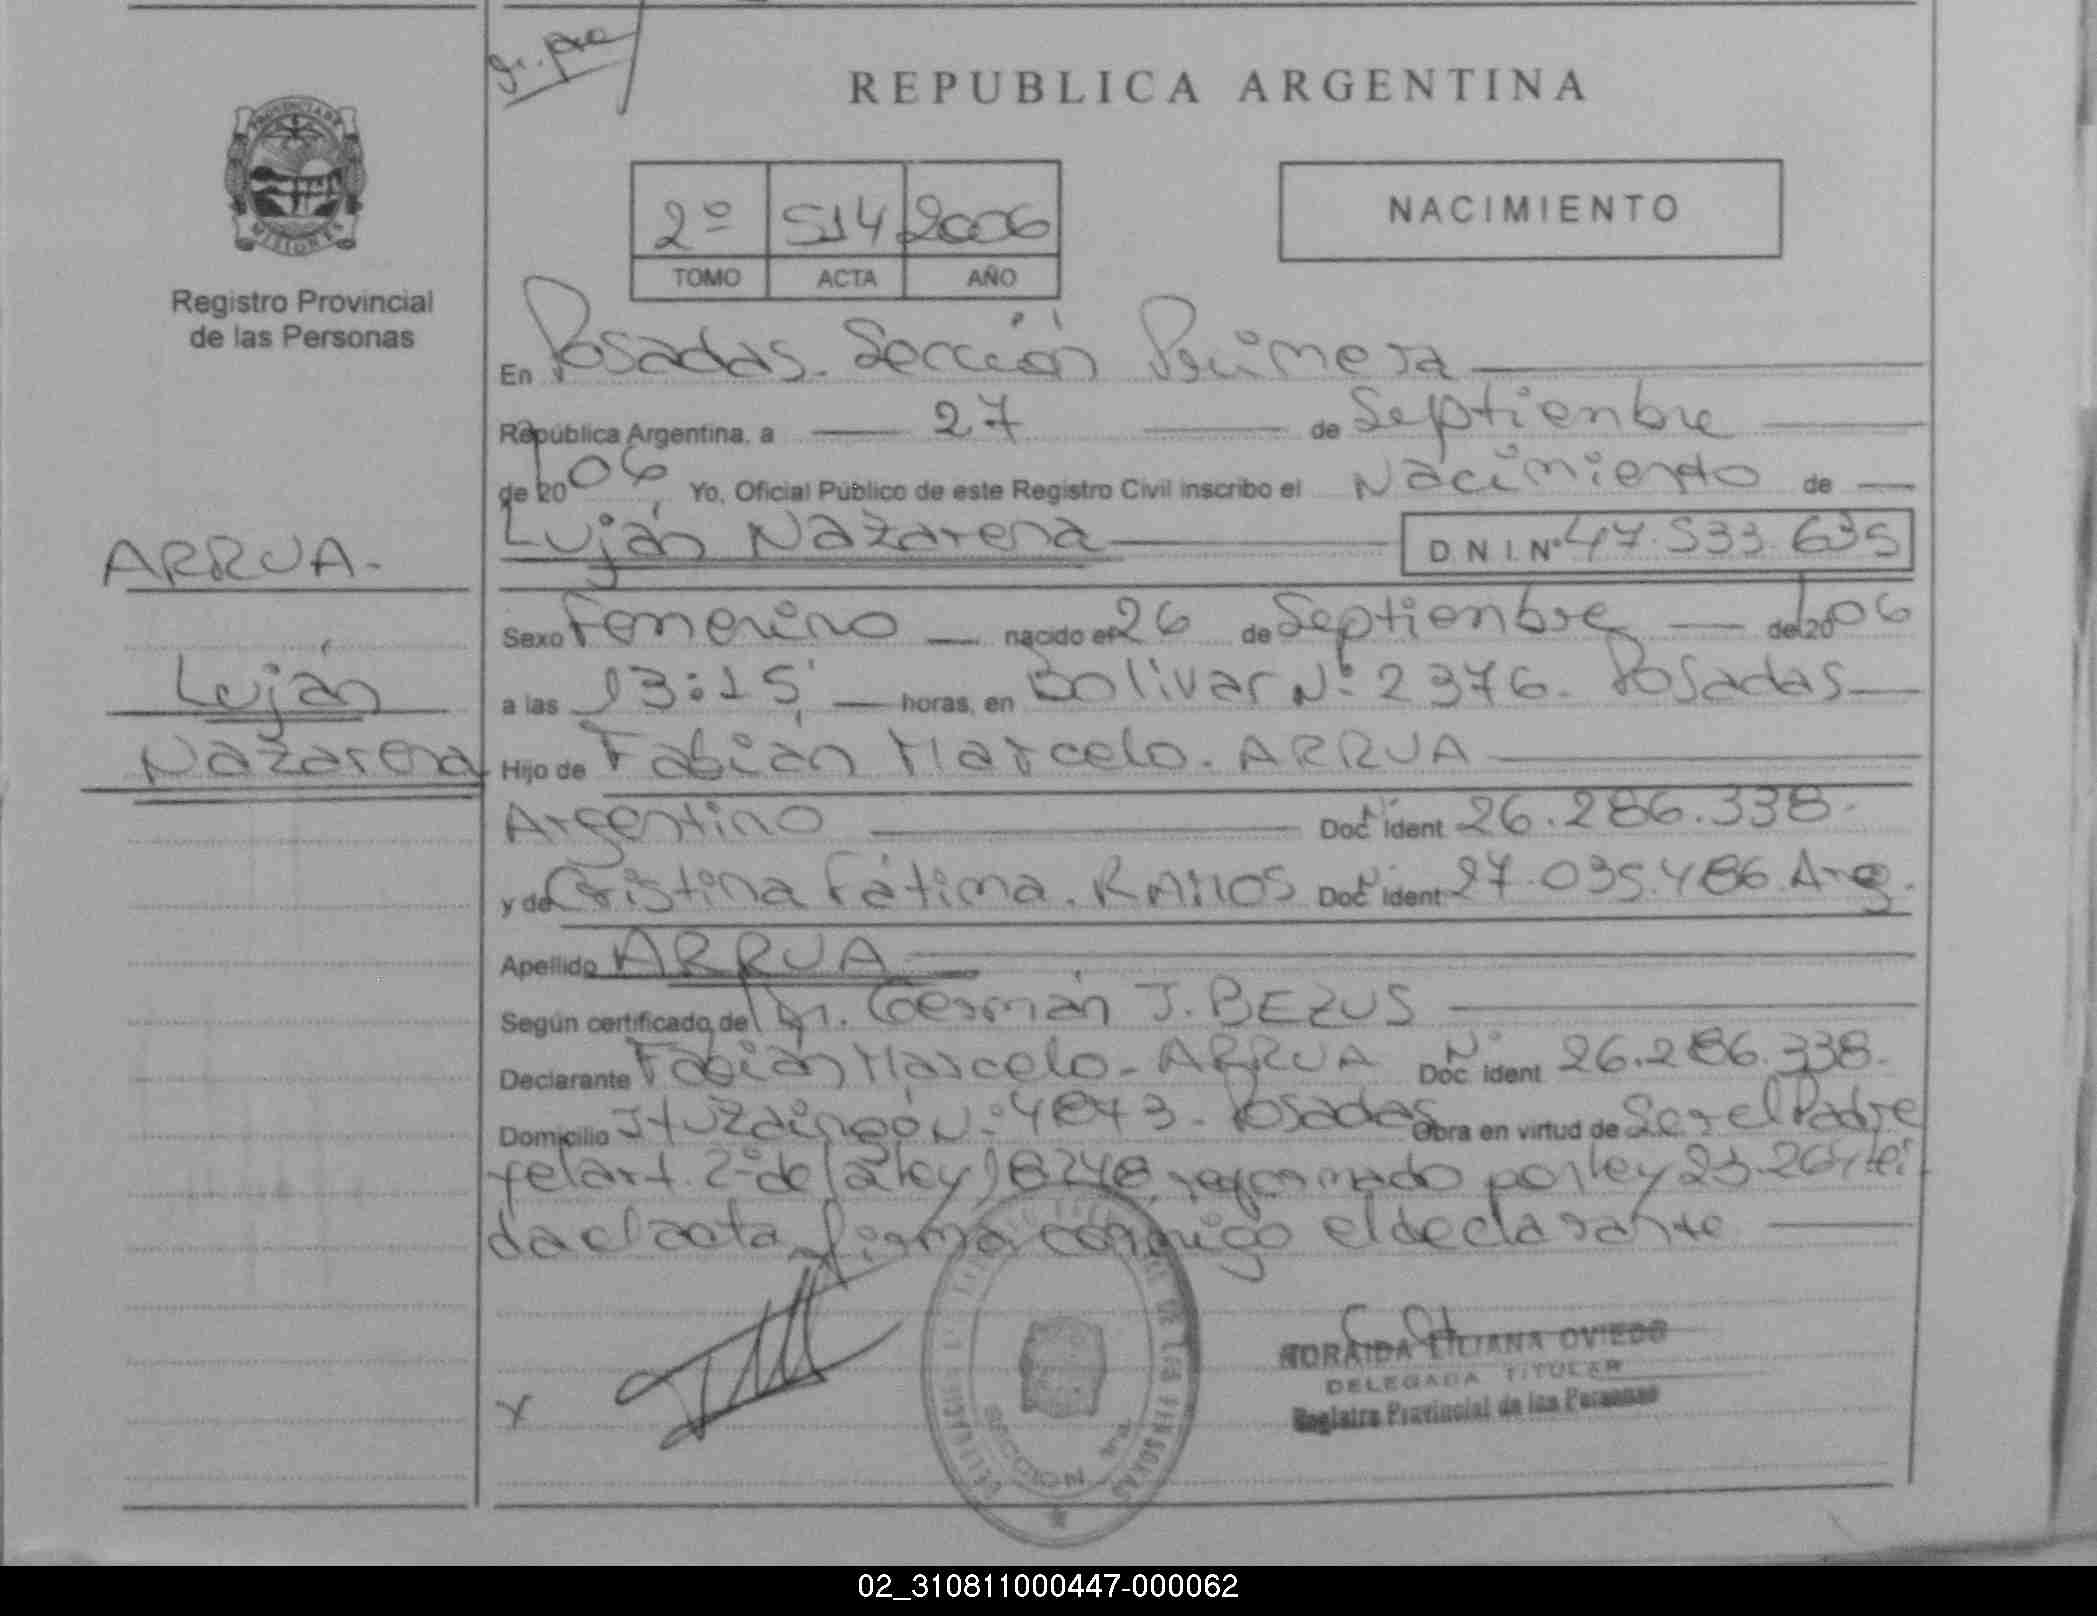 REPUBLICA ARGENTINA
PROVINCIA DE
MISIONES
Registro Provincial
de las Personas
2º 514 2006
TOMO ACTA AÑO
NACIMIENTO
En Posadas. Sección Primera
República Argentina, a 27 de Septienbre
de 2006, Yo, Oficial Público de este Registro Civil inscribo el Nacimiento de
Luján Nazarena D N I. Nº 47.533.635
ARRUA.
Luján
Nazarena
Sexo Femenino nacido el 26 de Septienbre de 2006
a las 13:15 horas, en Bolivar Nº 2376. Posadas
Hijo de Fabián Marcelo. ARRUA
Argentino Doc Nº ident 26.286.338.
y de Cristina Fátima. RAMOS Doc Nº ident 27.035.486. Arg.
Apellido ARRUA
Según certificado de Dr. Germán J. BEZUS
Declarante Fabián Marcelo - ARRUA Doc Nº ident 26.286.338.
Domicilio Ituzaingó Nº 4843. Posadas Obra en virtud de Ser el Padre
y el art. 2º de la ley 18248, reformado por ley 23.264, leí
da el acta firma conmigo el declarante
X
DE LAS PERSONAS
SECCION 1ra.
NORAIDA LILIANA OVIEDO
DELEGADA TITULAR
Registro Provincial de las Personas
02_310811000447-000062